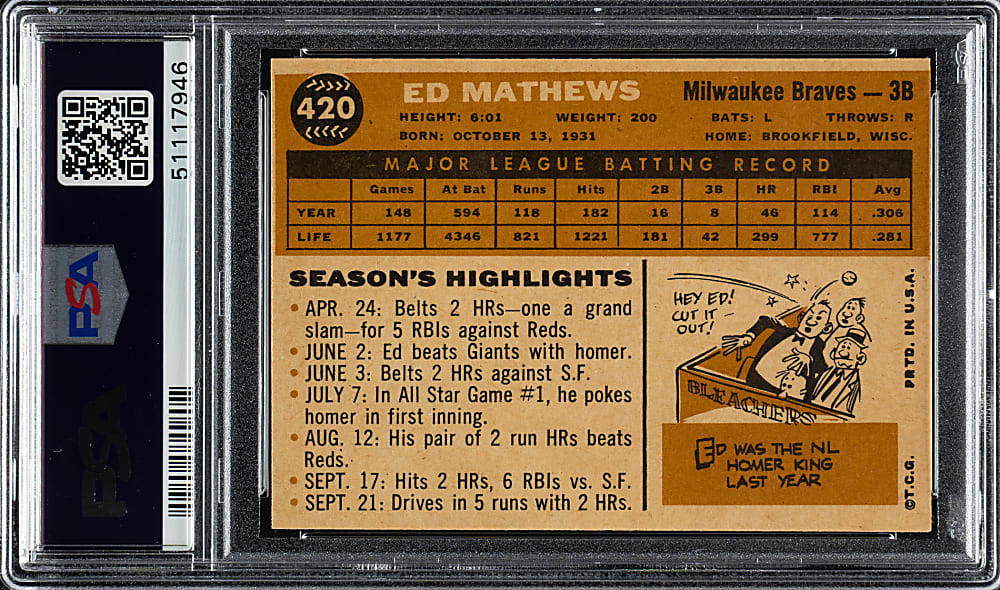 PSA
51117946
PSA
420
ED MATHEWS
Milwaukee Braves — 3B
HEIGHT: 6:01 WEIGHT: 200 BATS: L THROWS: R
BORN: OCTOBER 13, 1931 HOME: BROOKFIELD, WISC.
MAJOR LEAGUE BATTING RECORD
Games At Bat Runs Hits 2B 3B HR RBI Avg
YEAR 148 594 118 182 16 8 46 114 .306
LIFE 1177 4346 821 1221 181 42 299 777 .281
SEASON'S HIGHLIGHTS
• APR. 24: Belts 2 HRs—one a grand
slam—for 5 RBIs against Reds.
• JUNE 2: Ed beats Giants with homer.
• JUNE 3: Belts 2 HRs against S.F.
• JULY 7: In All Star Game #1, he pokes
homer in first inning.
• AUG. 12: His pair of 2 run HRs beats
Reds.
• SEPT. 17: Hits 2 HRs, 6 RBIs vs. S.F.
• SEPT. 21: Drives in 5 runs with 2 HRs.
HEY ED!
CUT IT
OUT!
BLEACHERS
ED WAS THE NL
HOMER KING
LAST YEAR
©T.C.G. PRTD. IN U.S.A.